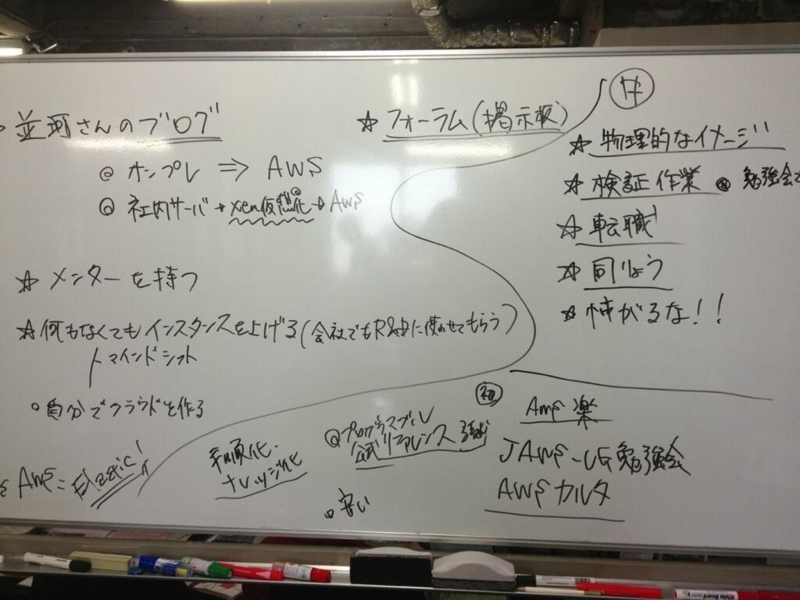 並河さんのブログ
◎ オンプレ ⇒ AWS
◎ 社内サーバ → xen仮想化 → AWS
☆ メンターを持つ
☆ 何もなくてもインスタンスを上げる(会社でも自由に使わせてもらう)
マインドシフト
自分でクラウドを作る
AWS = Elastic!
☆ フォーラム(掲示板)
☆ 物理的なイメージ
☆ 検証作業 ◎ 勉強会で
☆ 転職!
☆ 同りょう
☆ 怖がるな!!
手順化・
ナレッジ化
◎ プログラスブル
公式リファレンス
安い
初
AWS 楽
JAWS-UG勉強会
AWSカルタ